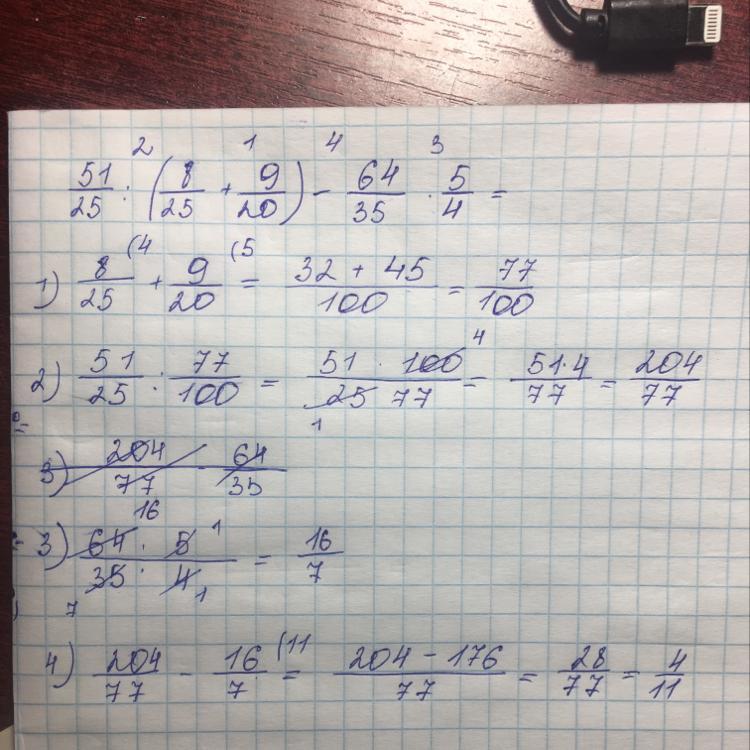 2 1 4 3
51/25 : (8/25 + 9/20) - 64/35 · 5/4 =
1) 8/25 (4 + 9/20 (5 = 32 + 45/100 = 77/100
2) 51/25 : 77/100 = 51 · 100 4/25 1 77 = 51·4/77 = 204/77
3) 204/77 - 64/35
3) 64 16 · 5 1/35 7 · 4 1 = 16/7
4) 204/77 - 16/7 (11 = 204 - 176/77 = 28/77 = 4/11